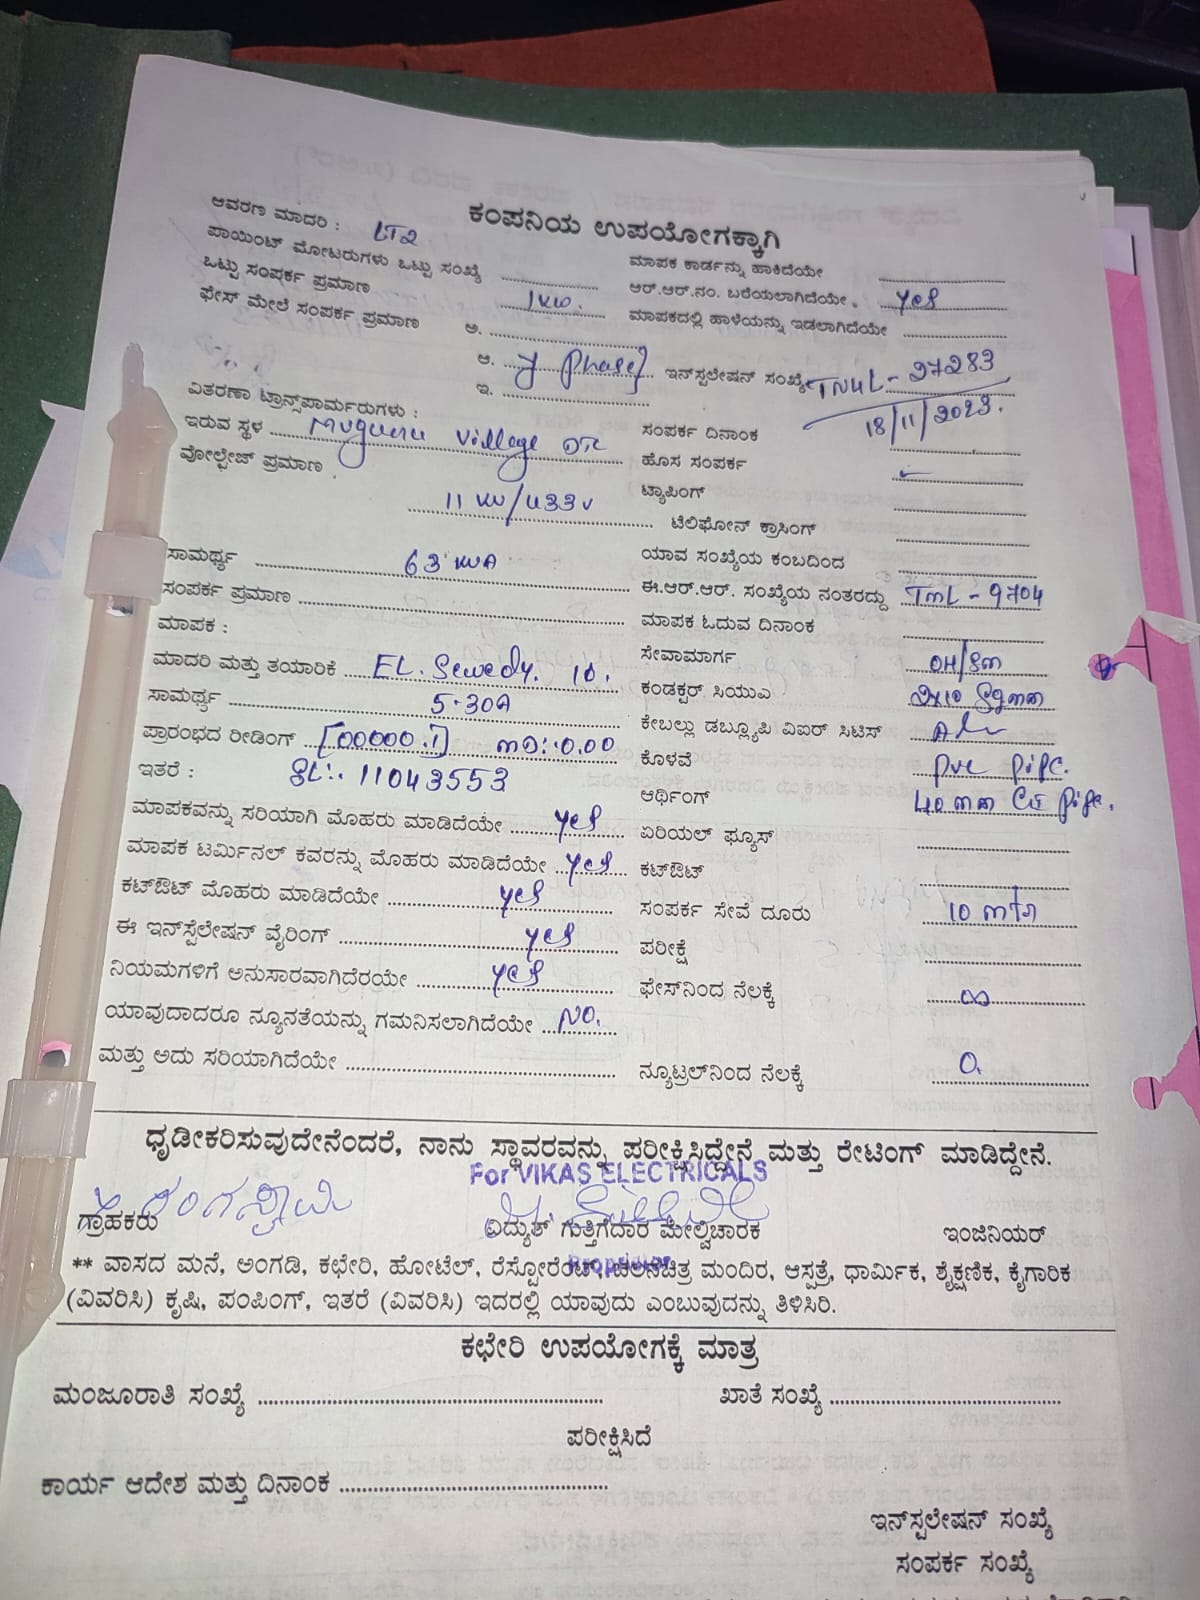 ಕಂಪನಿಯ ಉಪಯೋಗಕ್ಕಾಗಿ
ಆವರಣ ಮಾದರಿ : LT2
ಪಾಯಿಂಟ್ ಮೋಟರುಗಳು ಒಟ್ಟು ಸಂಖ್ಯೆ
ಒಟ್ಟು ಸಂಪರ್ಕ ಪ್ರಮಾಣ 1KW.
ಫೇಸ್ ಮೇಲೆ ಸಂಪರ್ಕ ಪ್ರಮಾಣ ಅ.
ಆ. Phase
ಇ.
ವಿತರಣಾ ಟ್ರಾನ್ಸ್‌ಪಾರ್ಮರುಗಳು :
ಇರುವ ಸ್ಥಳ Village
ವೋಲ್ಟೇಜ್ ಪ್ರಮಾಣ
11 KV/433V
ಸಾಮರ್ಥ್ಯ 63 KVA
ಸಂಪರ್ಕ ಪ್ರಮಾಣ
ಮಾಪಕ :
ಮಾದರಿ ಮತ್ತು ತಯಾರಿಕೆ EL. Sewedy. 10.
ಸಾಮರ್ಥ್ಯ 5-30A
ಪ್ರಾರಂಭದ ರೀಡಿಂಗ್ [00000.1] MD:.0.00
ಇತರೆ : SL:. 11043553
ಮಾಪಕವನ್ನು ಸರಿಯಾಗಿ ಮೊಹರು ಮಾಡಿದೆಯೇ yes
ಮಾಪಕ ಟರ್ಮಿನಲ್ ಕವರನ್ನು ಮೊಹರು ಮಾಡಿದೆಯೇ yes
ಕಟ್‌ಔಟ್ ಮೊಹರು ಮಾಡಿದೆಯೇ yes
ಈ ಇನ್‌ಸ್ಟಲೇಷನ್ ವೈರಿಂಗ್ yes
ನಿಯಮಗಳಿಗೆ ಅನುಸಾರವಾಗಿದೆರಯೇ yes
ಯಾವುದಾದರೂ ನ್ಯೂನತೆಯನ್ನು ಗಮನಿಸಲಾಗಿದೆಯೇ NO.
ಮತ್ತು ಅದು ಸರಿಯಾಗಿದೆಯೇ
ಮಾಪಕ ಕಾರ್ಡನ್ನು ಹಾಕಿದೆಯೇ
ಆರ್.ಆರ್.ನಂ. ಬರೆಯಲಾಗಿದೆಯೇ. yes
ಮಾಪಕದಲ್ಲಿ ಹಾಳೆಯನ್ನು ಇಡಲಾಗಿದೆಯೇ
ಇನ್‌ಸ್ಪಲೇಷನ್ ಸಂಖ್ಯೆ 27283
18/11/2023.
ಸಂಪರ್ಕ ದಿನಾಂಕ
ಹೊಸ ಸಂಪರ್ಕ
ಟ್ಯಾಪಿಂಗ್
ಟೆಲಿಫೋನ್ ಕ್ರಾಸಿಂಗ್
ಯಾವ ಸಂಖ್ಯೆಯ ಕಂಬದಿಂದ
ಈ.ಆರ್.ಆರ್. ಸಂಖ್ಯೆಯ ನಂತರದ್ದು TML - 9704
ಮಾಪಕ ಓದುವ ದಿನಾಂಕ
ಸೇವಾಮಾರ್ಗ OH/SM
ಕಂಡಕ್ಟರ್ ಸಿಯುಎ 2x10 Sqmm
ಕೇಬಲ್ಲು ಡಬ್ಲ್ಯೂಪಿ ಎಐಆರ್ ಸಿಟಿಸ್
ಕೊಳವೆ pvc pipe.
ಆರ್ಥಿಂಗ್ 40 mm pipe.
ಏರಿಯಲ್ ಫ್ಯೂಸ್
ಕಟ್‌ಔಟ್
ಸಂಪರ್ಕ ಸೇವೆ ದೂರು 10 mtr
ಪರೀಕ್ಷೆ
ಫೇಸ್‌ನಿಂದ ನೆಲಕ್ಕೆ ∞
ನ್ಯೂಟ್ರಲ್‌ನಿಂದ ನೆಲಕ್ಕೆ 0.
ಧೃಡೀಕರಿಸುವುದೇನೆಂದರೆ, ನಾನು ಸ್ಥಾವರವನ್ನು ಪರೀಕ್ಷಿಸಿದ್ದೇನೆ ಮತ್ತು ರೇಟಿಂಗ್ ಮಾಡಿದ್ದೇನೆ.
For VIKAS ELECTRICALS
ರಂಗಸ್ವಾಮಿ
ಗ್ರಾಹಕರು ವಿದ್ಯುತ್ ಗುತ್ತಿಗೆದಾರ ಮೇಲ್ವಿಚಾರಕ ಇಂಜಿನಿಯರ್
** ವಾಸದ ಮನೆ, ಅಂಗಡಿ, ಕಛೇರಿ, ಹೋಟೆಲ್, ರೆಸ್ಟೋರೆಂಟ್, ಚಲನಚಿತ್ರ ಮಂದಿರ, ಆಸ್ಪತ್ರೆ, ಧಾರ್ಮಿಕ, ಶೈಕ್ಷಣಿಕ, ಕೈಗಾರಿಕ
(ವಿವರಿಸಿ) ಕೃಷಿ, ಪಂಪಿಂಗ್, ಇತರೆ (ವಿವರಿಸಿ) ಇದರಲ್ಲಿ ಯಾವುದು ಎಂಬುವುದನ್ನು ತಿಳಿಸಿರಿ.
ಕಛೇರಿ ಉಪಯೋಗಕ್ಕೆ ಮಾತ್ರ
ಮಂಜೂರಾತಿ ಸಂಖ್ಯೆ ಖಾತೆ ಸಂಖ್ಯೆ
ಪರೀಕ್ಷಿಸಿದೆ
ಕಾರ್ಯ ಆದೇಶ ಮತ್ತು ದಿನಾಂಕ
ಇನ್‌ಸ್ಪಲೇಷನ್ ಸಂಖ್ಯೆ
ಸಂಪರ್ಕ ಸಂಖ್ಯೆ